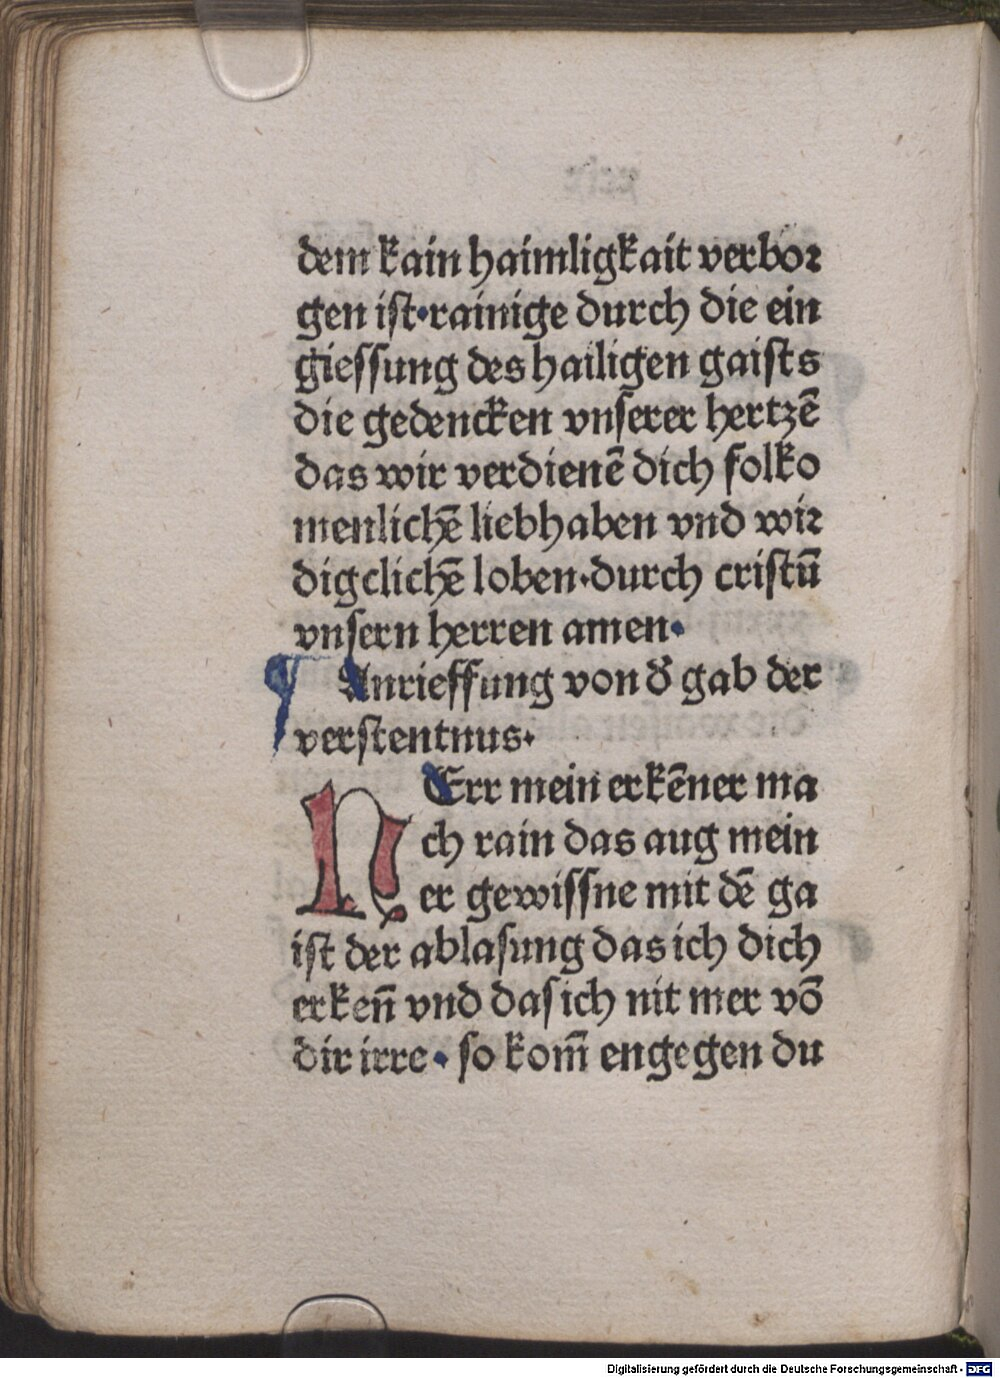 dem kain haimligkait verbor
gen ist·rainige durch die ein
giessung des hailigen gaists
die gedencken vnserer hertzē
das wir verdienē dich folko
menlichē liebhaben vnd wir
digclichē loben·durch cristū
vnsern herren amen·
¶ Anrieffung von d̓ gab der
verstentnus·
HErr mein erkēner ma
ch rain das aug mein
er gewissne mit dē ga
ist der ablasung das ich dich
erken̄ vnd das ich nit mer vō
dir irre· so kom̄ engegen du
Digitalisierung gefördert durch die Deutsche Forschungsgemeinschaft - DFG